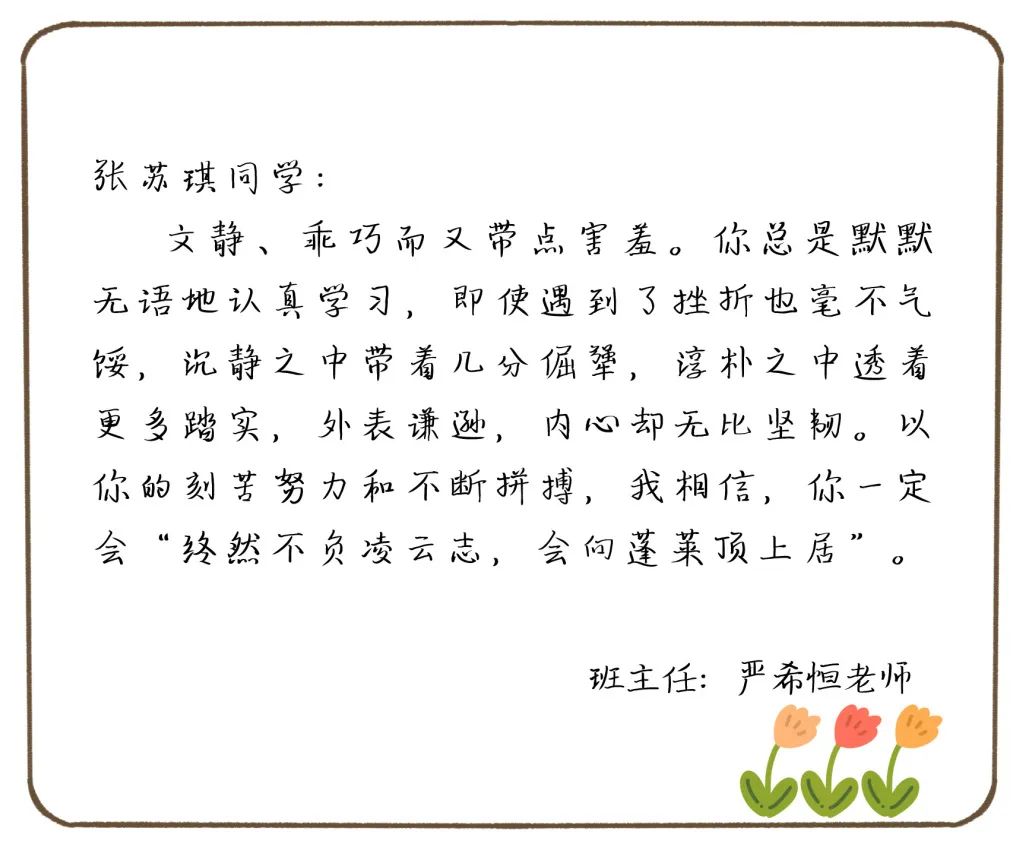 张苏琪同学：
文静、乖巧而又带点害羞。你总是默默
无语地认真学习，即使遇到了挫折也毫不气
馁，沉静之中带着几分倔犟，淳朴之中透着
更多踏实，外表谦逊，内心却无比坚韧。以
你的刻苦努力和不断拼搏，我相信，你一定
会“终然不负凌云志，会向蓬莱顶上居”。
班主任：严希恒老师